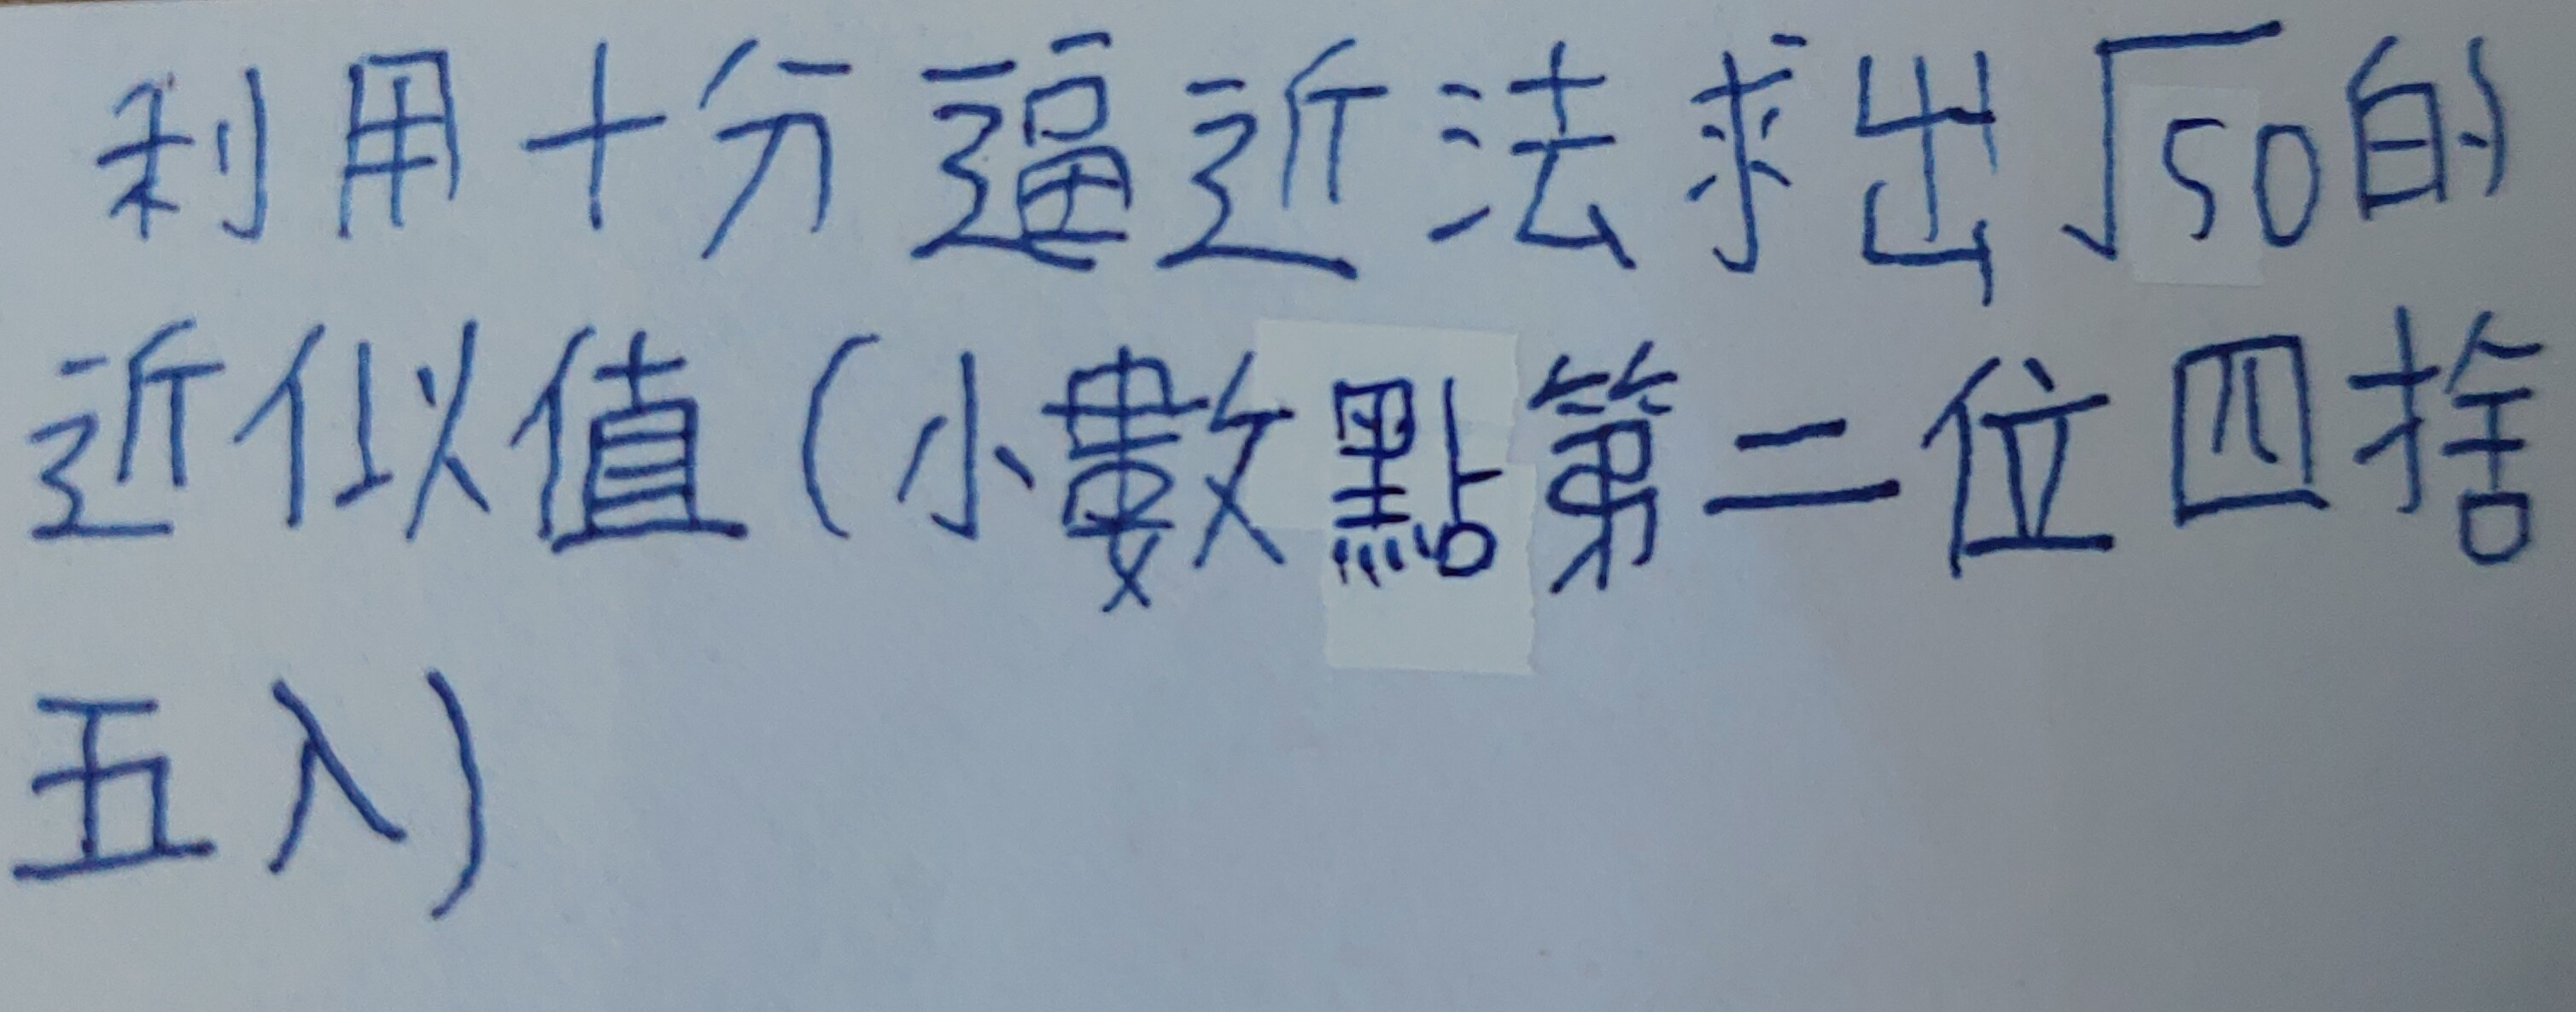 利用十分逼近法求出√50的
近似值(小數點第二位四捨
五入)